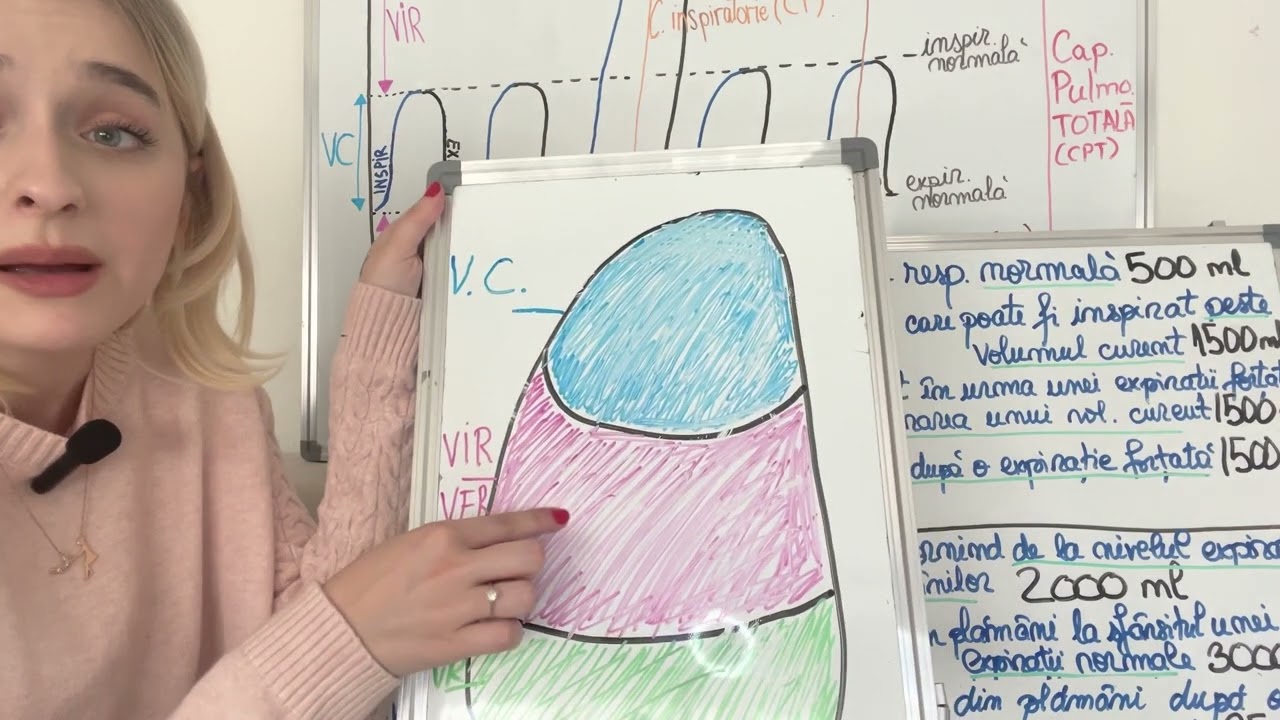 VIR
C. inspiratorie (CI)
VC
INSPIR
EX
inspir.
normală
expir.
normală
Cap.
Pulmo.
TOTALĂ
(CPT)
V.C.
VIR
VER
resp. normală 500 ml
care poate fi inspirat peste
Volumul curent 1500 ml
în urma unei expirații forțat
unui vol. curent 1500
după o expirație forțată 1500
de la nivelul expira
2000 ml
plămâni la sfârșitul unei
expirații normale 3000
din plămâni după o